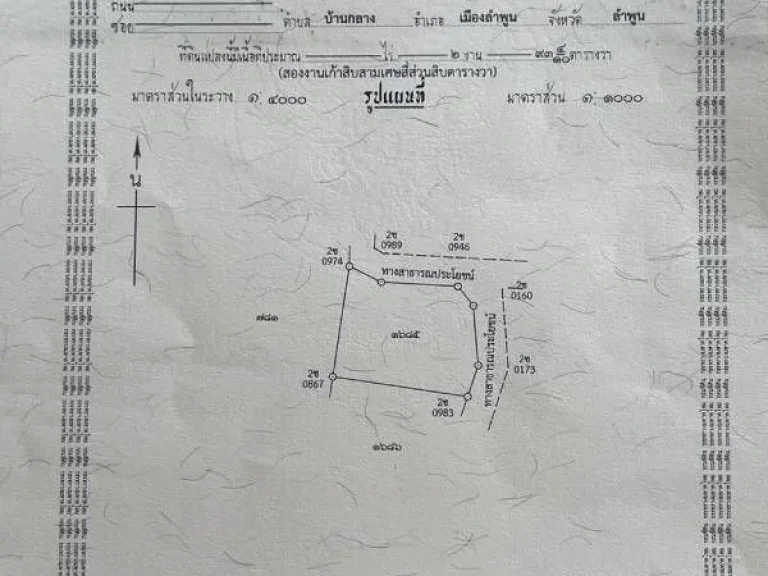 ถนน
ซอย ตำบล บ้านกลาง อำเภอ เมืองลำพูน จังหวัด ลำพูน
ที่ดินแปลงนี้มีเนื้อที่ประมาณ ไร่ ๒ งาน ๙๓ ๔/๑๐ ตารางวา
(สองงานเก้าสิบสามเศษสี่ส่วนสิบตารางวา)
มาตราส่วนในระวาง ๑: ๔๐๐๐ รูปแผนที่ มาตราส่วน ๑: ๑๐๐๐
น
2ซ 0989
2ซ 0946
2ซ 0974
ทางสาธารณประโยชน์
2ซ 0160
๗๘๑
๑๖๘๕
ทางสาธารณประโยชน์
2ซ 0173
2ซ 0867
2ซ 0983
๑๖๘๖